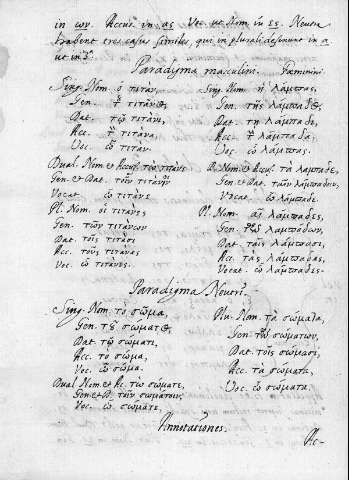 in ων. Accus. in ας. Voc. ut Nom. in ες. Neutra
habent tres casus similes, qui in plurali desinunt in α
ut in 3ª
Paradigma masculini. Fæminini
Sing. Nom. ὁ τιτὰν, Sing. Nom. ἡ λάμπας,
Gen. τȣ͂ τιτᾶνος, Gen. τῆς λάμπαδος,
Dat. τῷ τιτᾶνι, Dat. τῇ λάμπαδι,
Acc. τὸν τιτᾶνα, Acc. τὴν λάμπαδα,
Voc. ὦ τιτὰν. Voc. ὦ λάμπας.
Dual. Nom. et Accus. τὼ τιτᾶνε D. Nom. et Accus. τὰ λαμπάδε,
Gen. et Dat. τοῖν τιτάνοιν Gen. et Dat. ταῖν λαμπάδοιν,
Vocat ὦ τιτᾶνε Vocat ὦ λάμπαδε.
Pl. Nom. οἱ τιτᾶνες Pl. Nom. αἱ λάμπαδες,
Gen. τῶν τιτάνων Gen. τῶν λαμπάδων,
Dat. τοῖς τιτᾶσι Dat. ταῖς λάμπασι,
Acc. τοὺς τιτᾶνας Acc. τὰς λάμπαδας,
Voc. ὦ τιτᾶνες. Vocat. ὦ λάμπαδες.
Paradigma Neutri.
Sing. Nom. τὸ σῶμα, Plu. Nom. τὰ σώματα,
Gen. τȣ͂ σώματος, Gen. τῶν σωμάτων,
Dat. τῷ σώματι, Dat. τοῖς σώμασι,
Acc. τὸ σῶμα, Acc. τὰ σώματα,
Voc. ὦ σῶμα. Voc. ὦ σώματα.
Dual Nom. et Ac. τὼ σώματε,
Gen. et D. τοῖν σωμάτοιν,
Voc. ὦ σώματε.
Annotationes.
Ac-